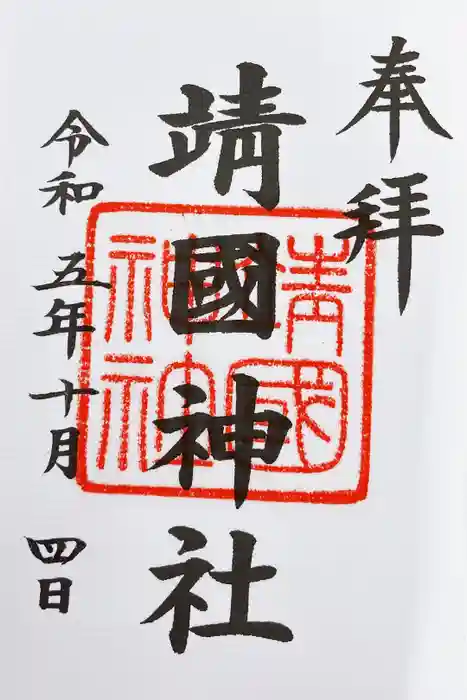 奉拝
靖國神社
靖國神社
令和五年十月四日